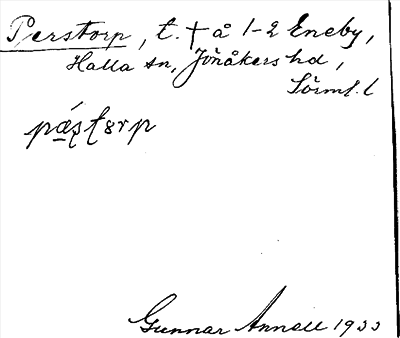 Perstorp, t. † å 1-2 Eneby,
Halla sn, Jönåkers hd,
Sörml. l
pæ̀ʂʈ8rp
Gunnar Annell 1933